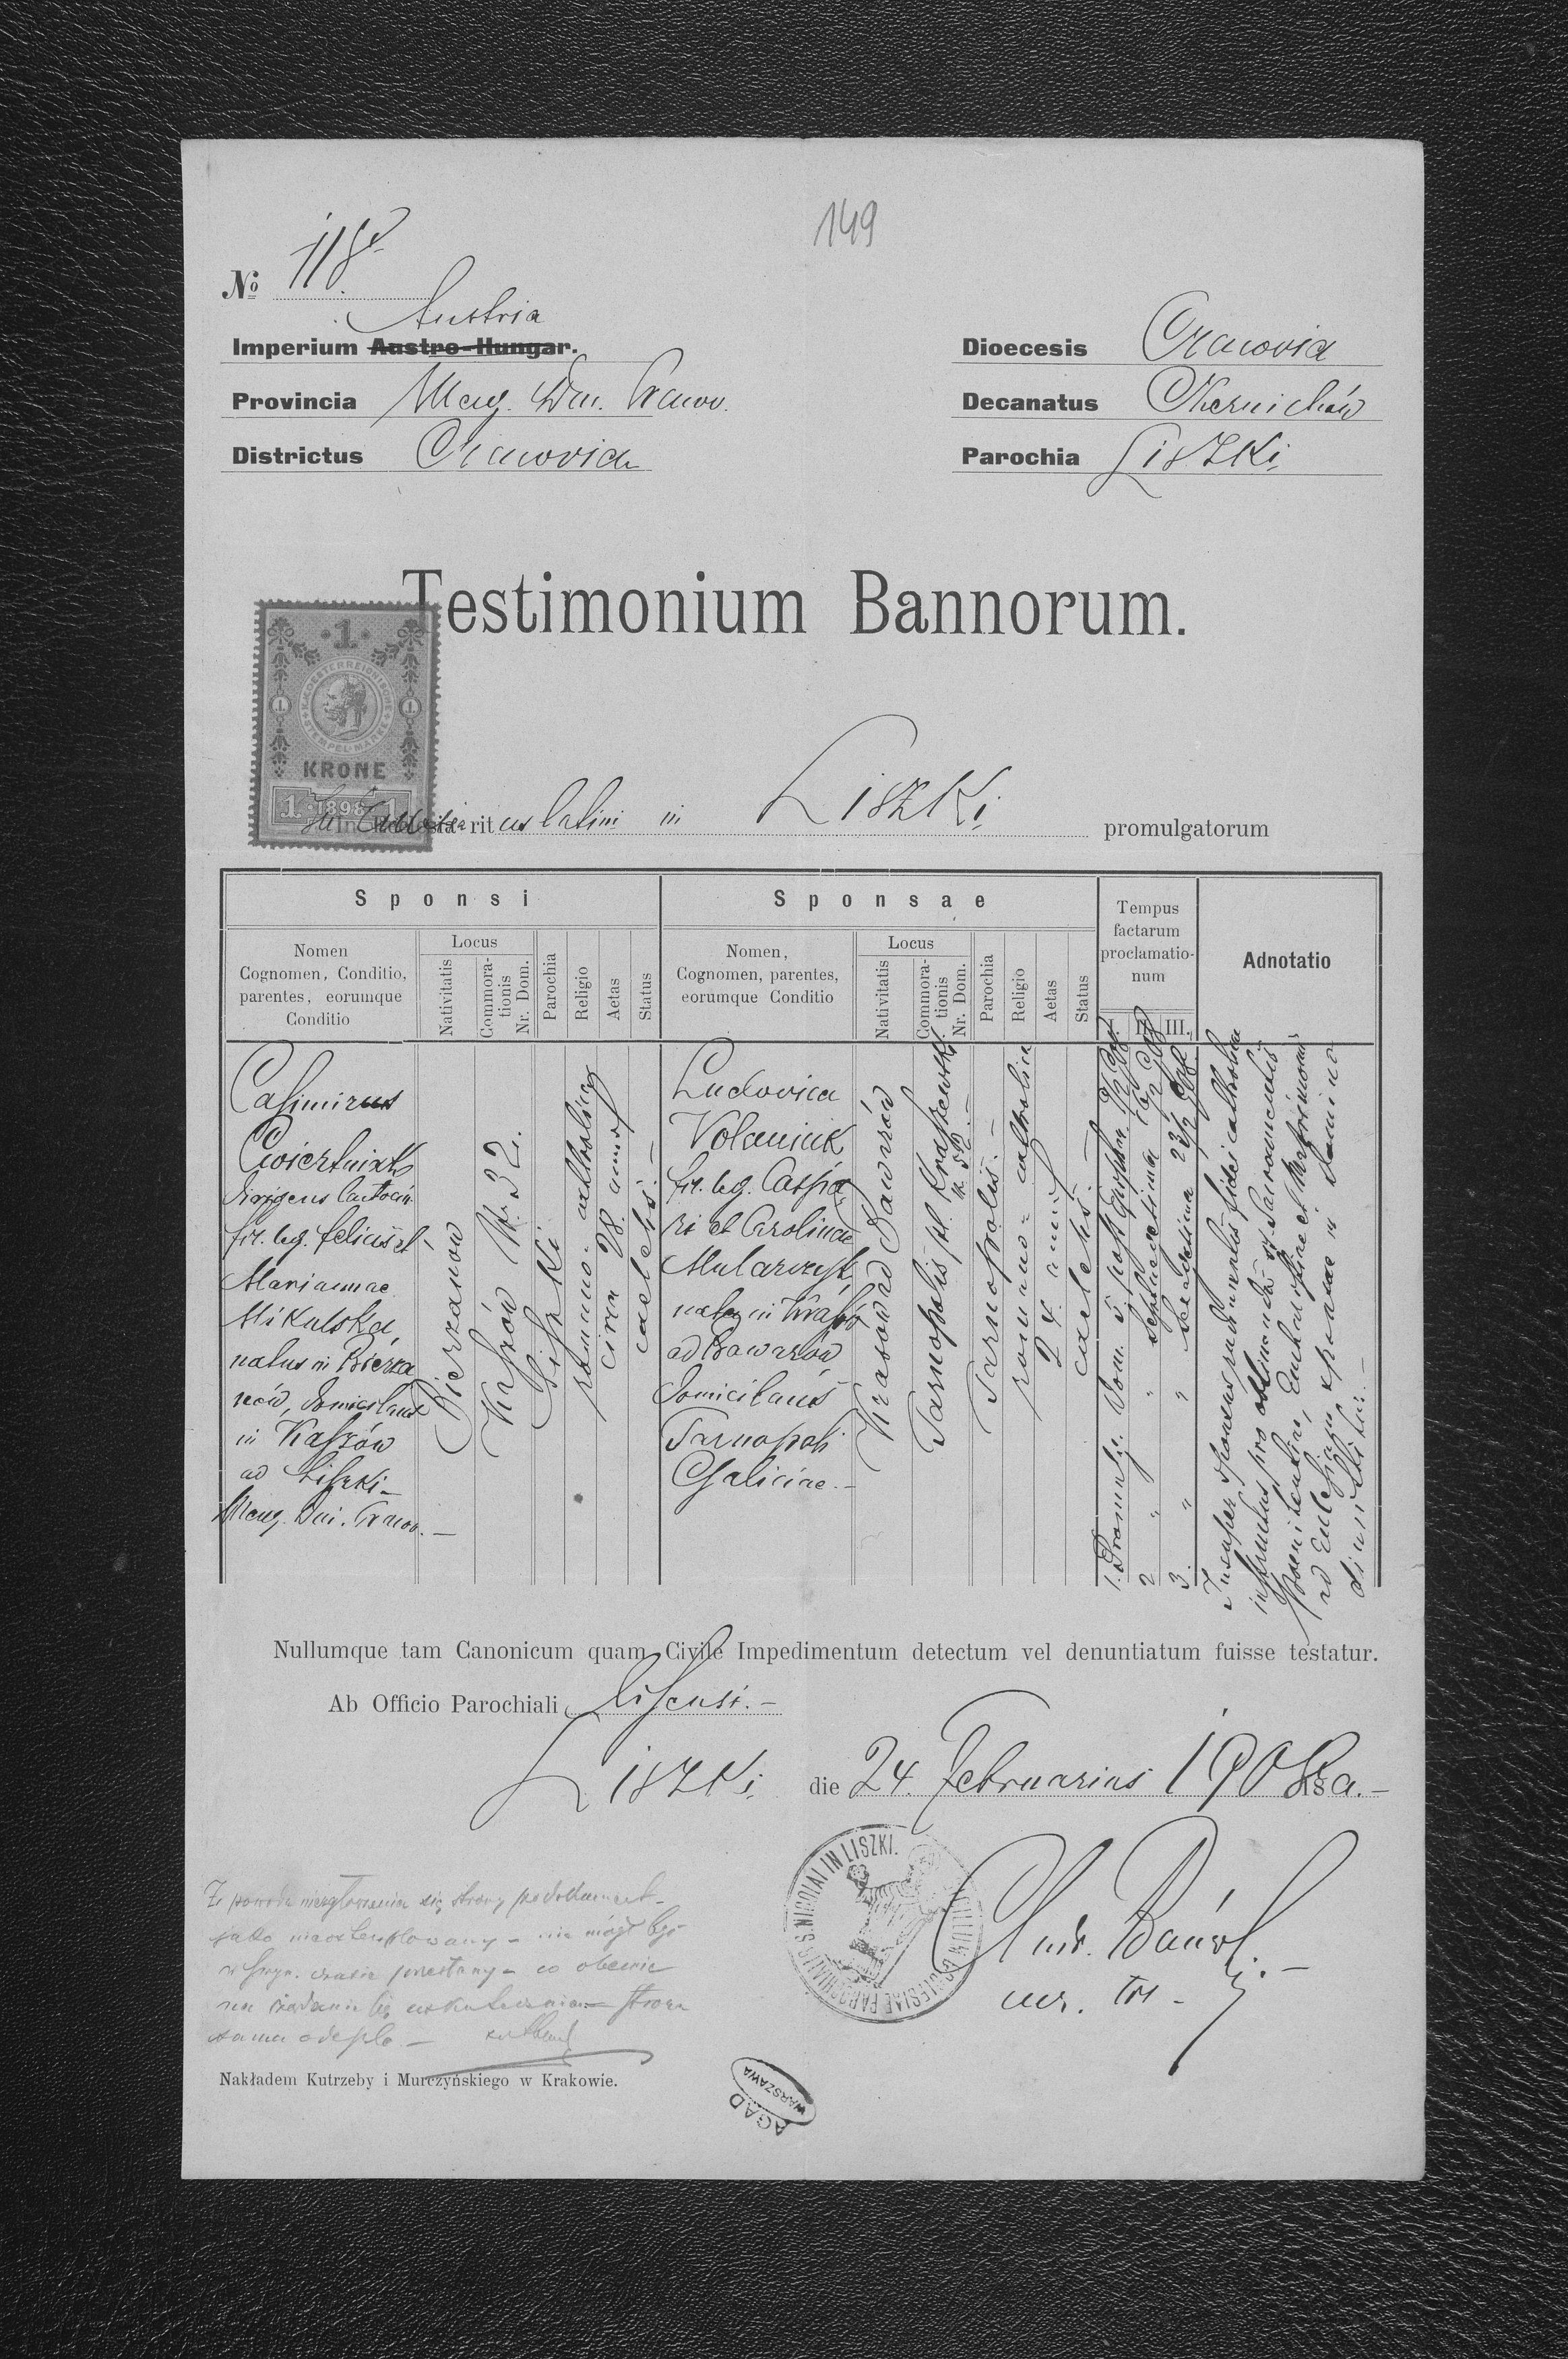 149
No 118
Austria
Imperium Austro-Hungar.
Provincia Mag. Duc. Cracov.
Districtus Cracovia
Dioecesis Cracovia
Decanatus Czernichów
Parochia Liszki
Testimonium Bannorum.
1
K.K. OESTERREICHISCHE STEMPEL-MARKE
1 1
KRONE
1 1898 1
In Ecclesia ritus latini in Liszki promulgatorum
Sponsi
Nomen
Cognomen, Conditio,
parentes, eorumque
Conditio
Locus
Nativitatis
Commorationis
Nr. Dom.
Parochia
Religio
Aetas
Status
Sponsae
Nomen,
Cognomen, parentes,
eorumque Conditio
Locus
Nativitatis
Commorationis
Nr. Dom.
Parochia
Religio
Aetas
Status
Tempus
factarum
proclamatio-
num
I. II. III.
Adnotatio
Casimirus
Ćwiertniak
fil. leg. Felicis et
Mariannae
Mikulska,
natus in Bierza
nów, domicilans
in Kaszów
ad Liszki
Mag. Duc. Cracov.
Bierzanów
Kaszów Nr. 32.
Liszki
romano-catholica
circa 28 annos
caelebs.
Ludovica
Wolaniuk
fil. leg. Caspa
ri et Carolinae
Mularczyk,
nata in Krasów
ad Bawarów
domicilans
Tarnopoli
Galiciae.
Krasów ad Bawarów
Tarnopolis pl. Kraszewski
Tarnopolis.
romano-catholica
24 annos
caelebs.
1. Promulg. Dom. 5 post Epiph. 9/2 908
2 " " Septuagesima 16/2 908
3. " " Sexagesima 23/2 908
Insuper sponsus rudimentis fidei catholicae
instructus pro obtinendis Sacramentis
Poenitentiae, Eucharistiae et Matrimonii
ad Ecclesiam sponsae in Domino
dimittitur.
Nullumque tam Canonicum quam Civile Impedimentum detectum vel denuntiatum fuisse testatur.
Ab Officio Parochiali Liscensi.
Liszki die 24. Februarius 1908 a.
SIGILLUM ECCLESIAE PAROCHIALIS S. NICOLAI IN LISZKI.
Z powodu niezgłoszenia się strony po dokument
jako nieostemplowany - nie mógł być
w czasie przesłany - co obecnie
na żądanie się uskutecznia - strona
sama
Nakładem Kutrzeby i Murczyńskiego w Krakowie.
AGAD
WARSZAWA